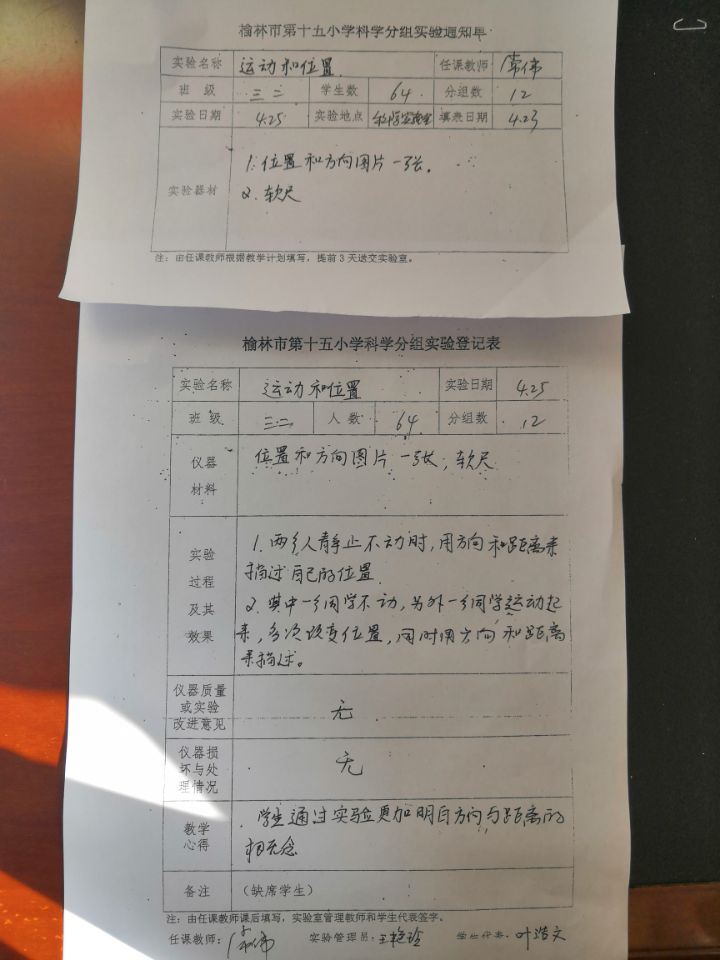 榆林市第十五小学科学分组实验通知单
实验名称 运动和位置 任课教师
班 级 三二 学生数 64 分组数 12
实验日期 4.25 实验地点 科学实验室 填表日期 4.23
实验器材
1. 位置和方向图片一张。
2. 软尺
注：由任课教师根据教学计划填写，提前3天送交实验室。
榆林市第十五小学科学分组实验登记表
实验名称 运动和位置 实验日期 4.25
班 级 三二 人 数 64 分组数 12
仪器材料 位置和方向图片一张，软尺
实验过程及其效果
1. 两个人静止不动时，用方向和距离来
描述自己的位置
2. 其中一个同学不动，另外一个同学运动起
来，多次改变位置，同时用方向和距离
来描述。
仪器质量或实验改进意见 无
仪器损坏与处理情况 无
教学心得 学生通过实验更加明白方向与距离的
概念
备注 （缺席学生）
注：由任课教师课后填写，实验室管理教师和学生代表签字。
任课教师： 实验管理员：王艳玲 学生代表：叶浩文